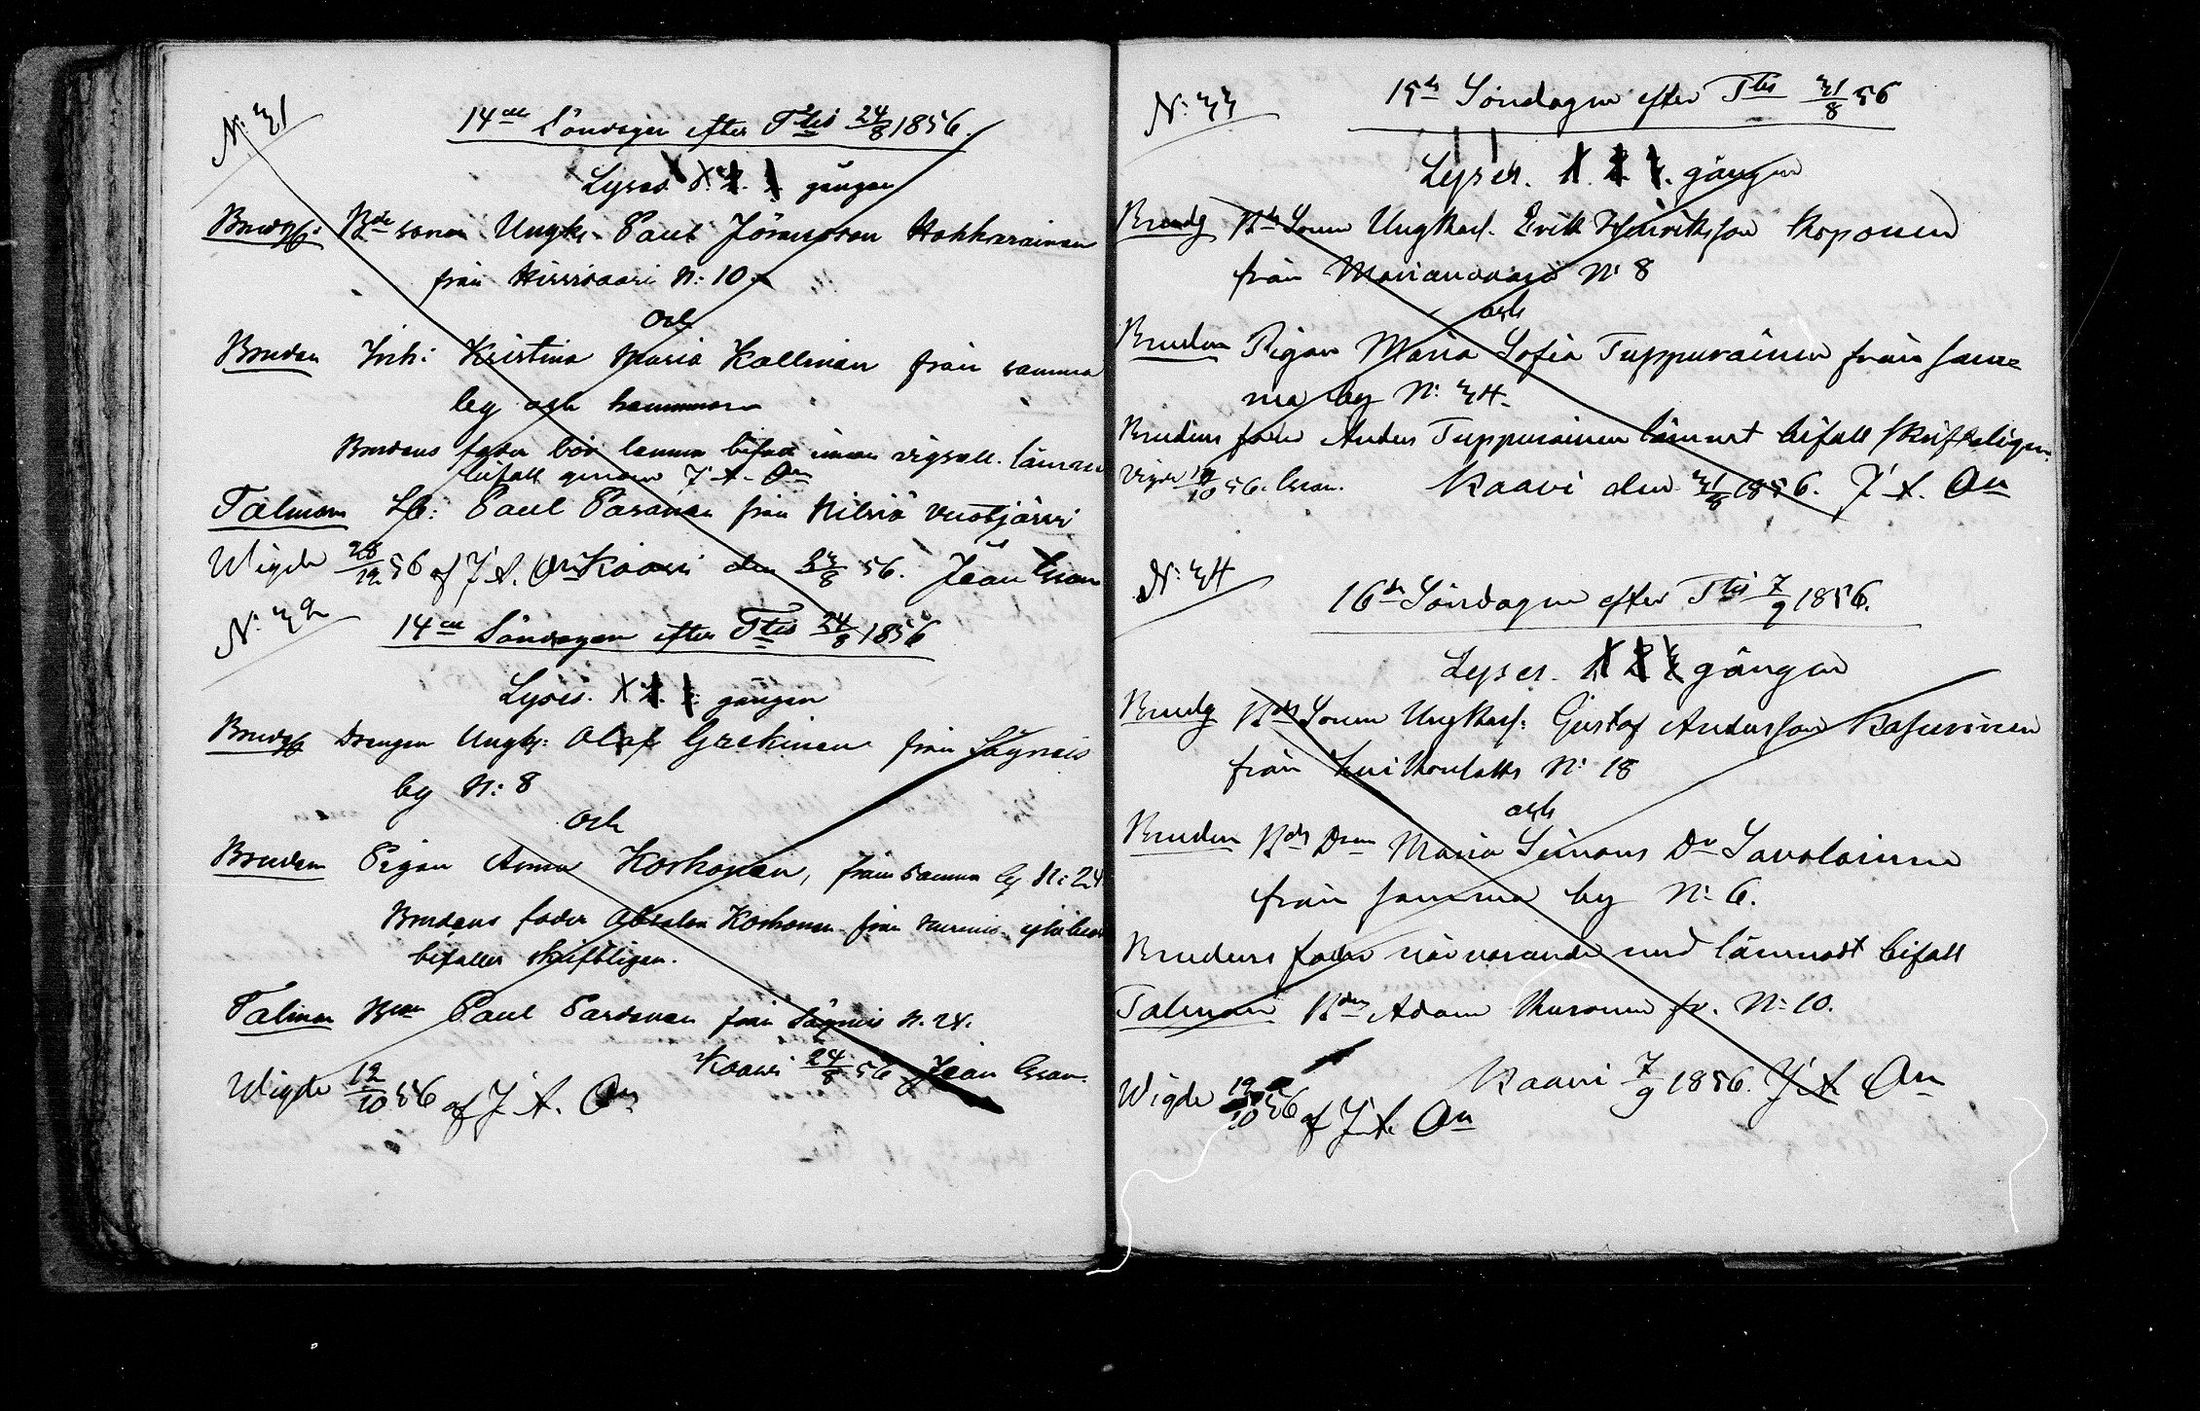 N: 31
14de Söndagen efter Ttis 24/8 1856.
Lyses 1. 2. 3. gången
Brudg: Bde sonen Ungk. Paul Jöransson Hakkarainen
från Hirvivaari N: 10
och
Bruden Inh: Kristina Maria Kallinen från samma
by och hemman
Brudens fader bör lemna bifall innan vigseln. lämnar
bifall genom J. A. On
Talman Lb: Paul Pasanen från Nilsiä Vuotjärvi
Wigde 28/12 56 af J. A. On Kaavi den 23/8 56. Jean Gran
N: 32
14de Söndagen efter Ttis 24/8 1856
Lyses. 1. 2. 3. gången
Brudg Drengen Ungk: Olof Grekinen från Sägneis
by N: 8
och
Bruden Pigan Anna Korhonen, från samma by N: 24
Brudens fader Absalon Korhonen från
bifaller skriftligen.
Talman Bon Paul Pardanen från Sägneis N. 24.
Kaavi 24/8 56 Jean Gran.
Wigde 12/10 56 af J. A. On
N: 33
15de Söndagen efter Ttis 31/8 56
Lyses. 1. 2. 3. gången
Brudg Bde Sonen Ungkarl. Erik Henriksson Koponen
från Marianvaara N: 8
och
Bruden Pigan Maria Sofia Tuppurainen från sam=
ma by N: 34.
Brudens fader Anders Tuppurainen lämnat bifall skrifteligen.
Vigde 10 56. Gran. Kaavi den 31/8 1856. J. A. On
N: 34
16de Söndagen efter Ttis 7/9 1856.
Lyses. 1 2 3 gången
Brudg Bde Sonen Ungkarl: Gustaf Andersson Kasurinen
från Luikonlaks N: 18
och
Bruden Bde Dren Maria Simons Dr Savolainen
från samma by N: 6.
Brudens fader närvarande med lämnadt bifall
Talman Bden Adam Kuronen fr. N: 10.
Kaavi 7/9 1856. J. A. On
Wigde 12/10 56 af J. A. On